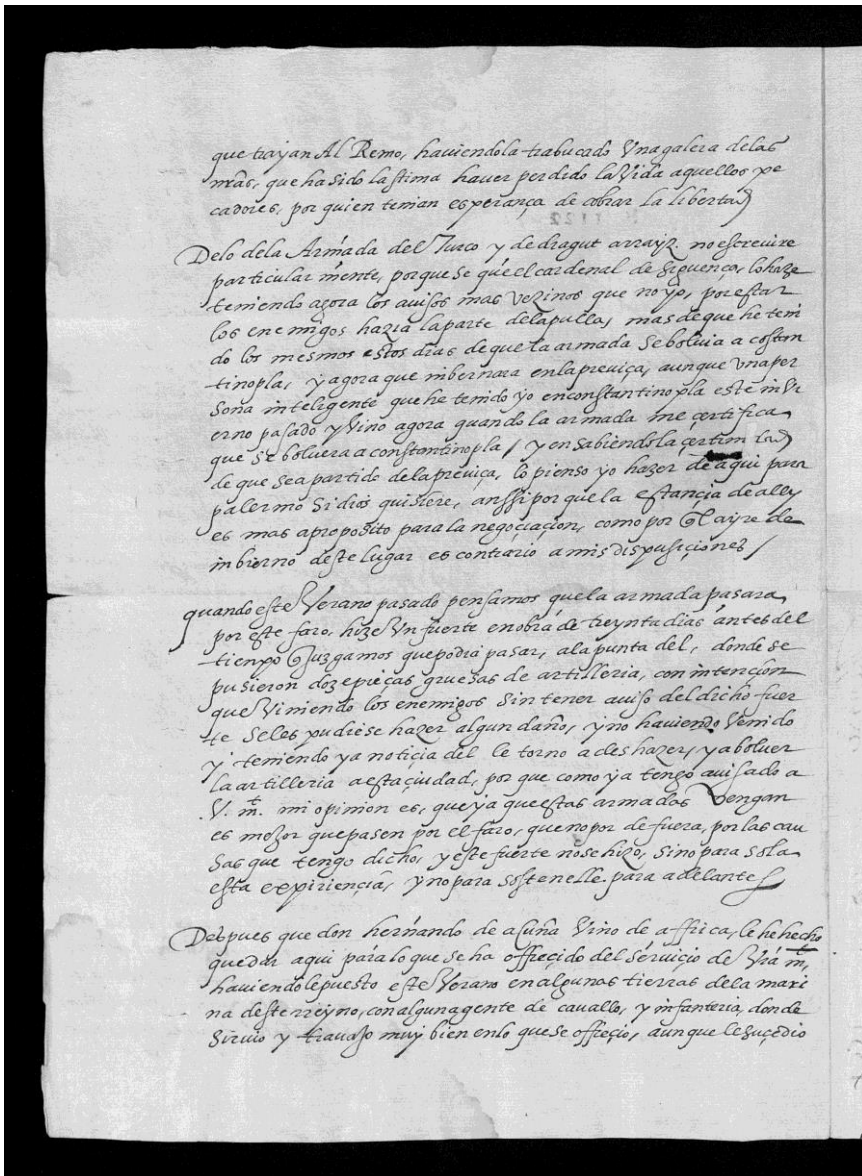 que trayan Al Remo, haviendola trabucado Vna galera delas
mras, que ha sido lastima haver perdido la Vida aquellos pe
cadores, por quien tenian esperança de cobrar la libertad
Delo dela Armada del Turco y de dragut arrayz. no escreuire
particular mente, porque se que el cardenal de Siguença, lo haze
teniendo agora los auisos mas vezinos que no yo, por estar
los enemigos hazia la parte delapulla, mas de que he teni
do los mesmos estos dias de que la armada se boluia a costan
tinopla, y agora que inbernara en la preuiça, aunque vna per
sona inteligente que he tenido yo en constantinopla este invi
erno pasado y Vino agora quando la armada me çertifica
que se boluera a constantinopla / y en sabiendo la çertinidad
de que sea partido dela preuiça, lo pienso yo hazer de aqui para
palermo Si dios quisiere, anssi por que la estançia de ally
es mas aproposito para la negoçiaçion, como por El ayre de
inbierno deste lugar es contrario a mis dispusiçiones /
quando este Verano pasado pensamos que la armada pasara
por este faro, hize Vn fuerte en obra de treynta dias antes del
tienpo Q Juzgamos que podia pasar, ala punta del, donde se
pusieron doze pieças gruesas de artilleria, con intençion
que Viniendo los enemigos Sin tener auiso del dicho fuer
te Seles pudiese hazer algun daño, y no haviendo Venido
y teniendo ya notiçia del le torno a des hazer, y a boluer
la artilleria a esta çiudad, por que como ya tengo auisado a
V. mt. mi opinion es, que ya que estas armadas Vengan
es mejor que pasen por el faro, que no por de fuera, por las cau
sas que tengo dicho, y este fuerte no se hizo, Sino para Sola
esta expiriençia, y no para sostenelle para adelante
Despues que don hernando de acuña Vino de affrica, le he hecho
quedar aqui para lo que se ha offreçido del Serviçio de Vra mt,
haviendole puesto este Verano en algunas tierras dela mari
na deste rreyno, con alguna gente de cauallo, y infanteria, donde
Siruio y travajo muy bien en lo que se offreçio, aunque le suçedio